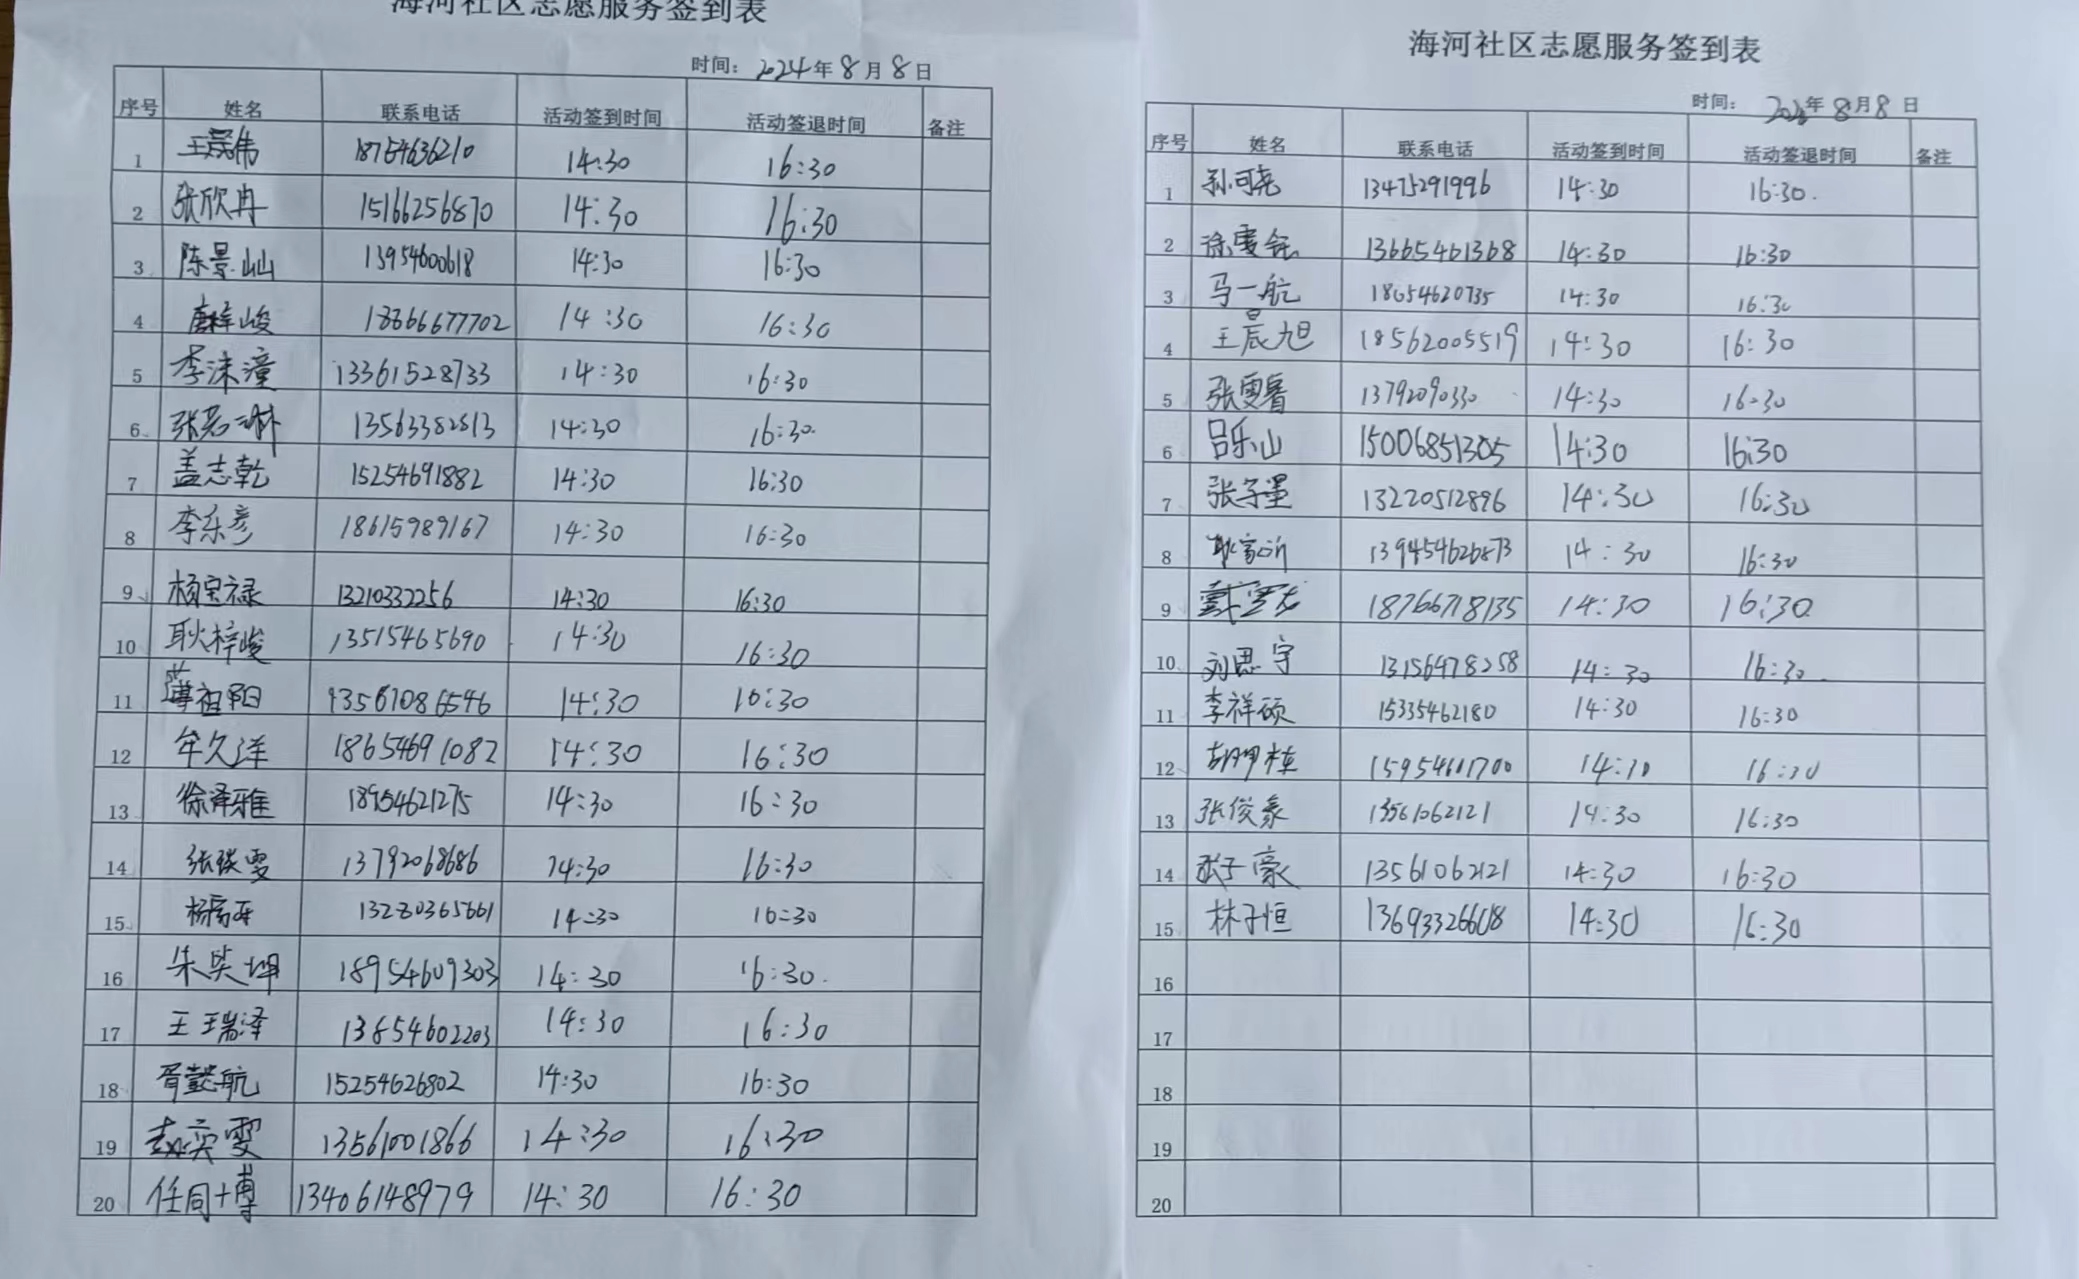 海河社区志愿服务签到表
时间: 2024年8月8日
序号 姓名 联系电话 活动签到时间 活动签退时间 备注
1 王 伟 18754636210 14:30 16:30
2 张欣冉 15166256870 14:30 16:30
3 陈景山山 13954600618 14:30 16:30
4 唐梓峻 18366677702 14:30 16:30
5 李沫潼 13361528733 14:30 16:30
6 张若琳 13563382813 14:30 16:30
7 盖志乾 15254691882 14:30 16:30
8 李东彦 18615989167 14:30 16:30
9 杨宝禄 13210332256 14:30 16:30
10 耿梓峻 13515465690 14:30 16:30
11 薄祖阳 14:30 16:30
12 牟久洋 18654691082 14:30 16:30
13 徐泽雅 18954621275 14:30 16:30
14 张瑛雯 13792068686 14:30 16:30
15 13280365661 14:30 16:30
16 朱奕坤 18954609303 14:30 16:30
17 王瑞泽 13854602203 14:30 16:30
18 胥懿航 15254626802 14:30 16:30
19 赵奕雯 13561001866 14:30 16:30
20 任同博 13406148979 14:30 16:30
海河社区志愿服务签到表
时间: 年8月8日
序号 姓名 联系电话 活动签到时间 活动签退时间 备注
1 孙可尧 13475291996 14:30 16:30
2 徐雯 13665461368 14:30 16:30
3 马一航 18654620735 14:30 16:30
4 王晨旭 18562005519 14:30 16:30
5 张雯睿 13792090330 14:30 16:30
6 吕乐山 15006851305 14:30 16:30
7 张子墨 13220512896 14:30 16:30
8 耿家沂 139454626873 14:30 16:30
9 18766718135 14:30 16:30
10 刘思宇 13156478258 14:30 16:30
11 李祥硕 15335462180 14:30 16:30
12 15954601700 14:30 16:30
13 张俊豪 13561062121 14:30 16:30
14 张子豪 13561062121 14:30 16:30
15 林子恒 13693326608 14:30 16:30
16
17
18
19
20